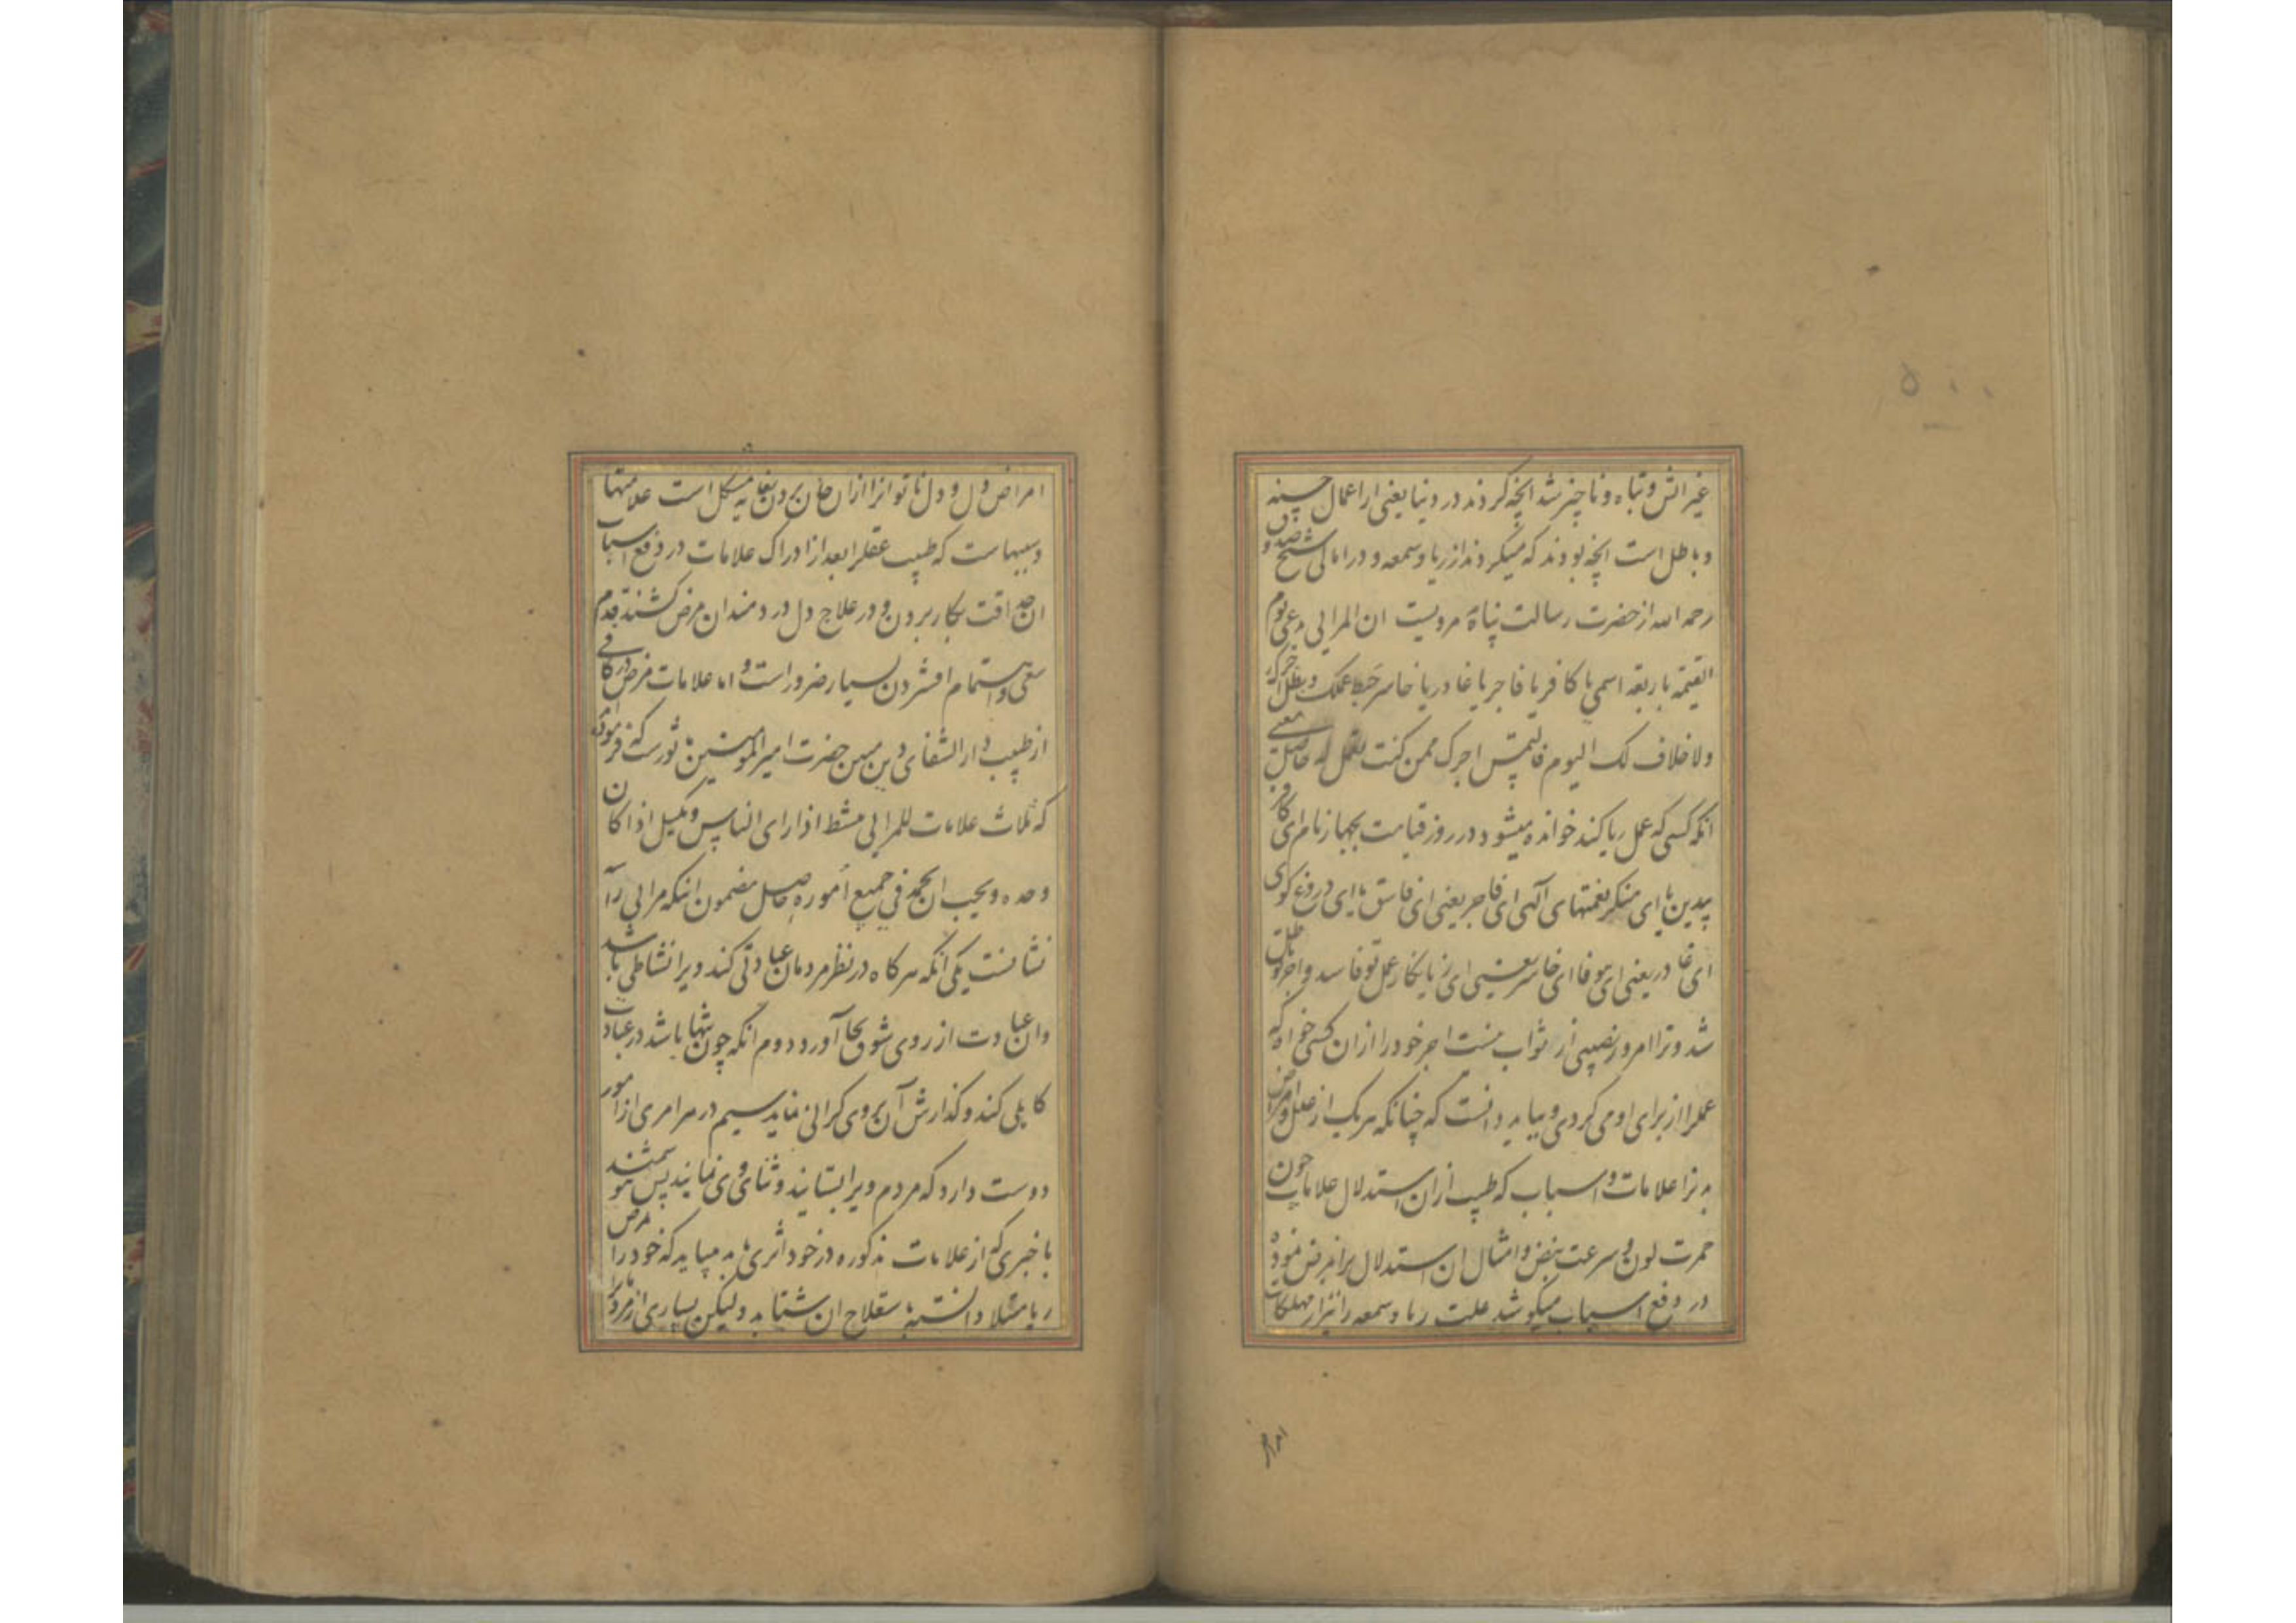 ۵۰۰
غیر آتش و تباه و ناچیز شد آنچه کردند در دنیا یعنی از اعمال حسنه
و باطل است آنچه بودند که میکردند از ریا و سمعه و در امالی شیخ صدوق
رحمه الله از حضرت رسالت پناه مرویست ان المرائی یدعی یوم
القیمة باربعة اسمی یا کافر یا فاجر یا غادر یا خاسر حبط عملک و بطل اجرک
ولا خلاف لک الیوم فالتمس اجرک ممن کنت تعمل له حاصل معنی
آنکه کسی که عمل ریا کند خوانده میشود در روز قیامت بچهار نام ای کافر
بیدین یا ای منکر نعمتهای آلهی ای فاجر یعنی ای فاسق یا ای دروغ کوی
ای غادر یعنی ای بیوفا ای خاسر یعنی ای زیانکار عمل تو فاسد و اجر تو باطل
شد و ترا امروز نصیبی از ثواب نیست اجر خود را از آن کسی خواه که
عمل را از برای او می کردی و بباید دانست که چنانکه هر یک از علل و امراض
بدنرا علامات و اسباب که طبیب از ان استدلال علامات چون
حمرت لون و سرعت نبض و امثال ان استدلال بر امرض نموده
در دفع اسباب میکوشد علت ریا و سمعه را نیز از مهلکات
امراض
امراض دل و دل ناتوانرا از ان جان بردن بغایه مشکل است علامتها
و سببهاست که طبیب عقلرا بعد از ادراک علامات در دفع اسباب
ان حداقت بکار بردن و در علاج دل دردمندان مرض کشنده قدم
سعی و اهتمام افشردن بسیار ضرور است و اما علامات مرض در کافی
از طبیب دار الشفای دین مبین حضرت امیر المومنین ماثورست که فرموده‌اند
که ثلاث علامات للمرائی ینشط اذا رای الناس و یکسل اذا کان
وحده و یحب ان یحمد فی جمیع اموره حاصل مضمون اینکه مرائی را سه
نشانست یکی آنکه هرکاه در نظر مردمان عبادتی کند ویرا نشاطی باشد
و ان عبادت از روی شوق بجا آورد دوم آنکه چون تنها باشد در عبادت
کاهلی کند و گذارش آن بروی کرانی نماید سیم در هر امری از امور
دوست دارد که مردم ویرا بستایند و ثنای وی نمایند پس هوشمند
با خبری که از علامات مذکوره در خود اثری یابد میباید که خود را مرض
ریا مبتلا دانسته بعلاج ان شتابد ولیکن بسیاری از مردم را